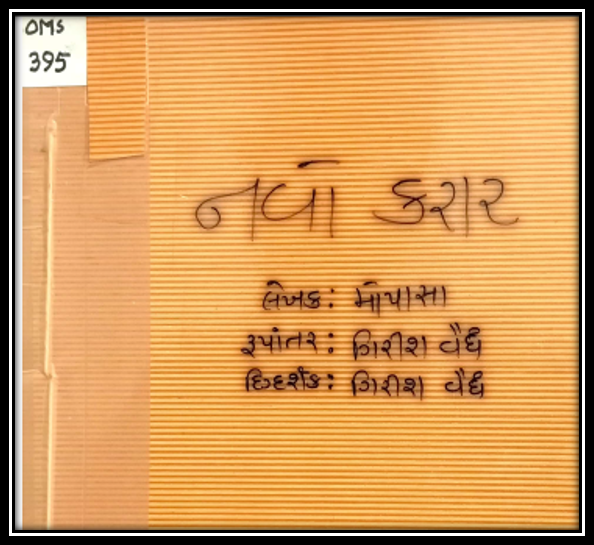 OMS
395
નવો કરાર
લેખક: મોપાસા
રૂપાંતર: ગિરીશ વૈદ્ય
દિગ્દર્શક: ગિરીશ વૈદ્ય